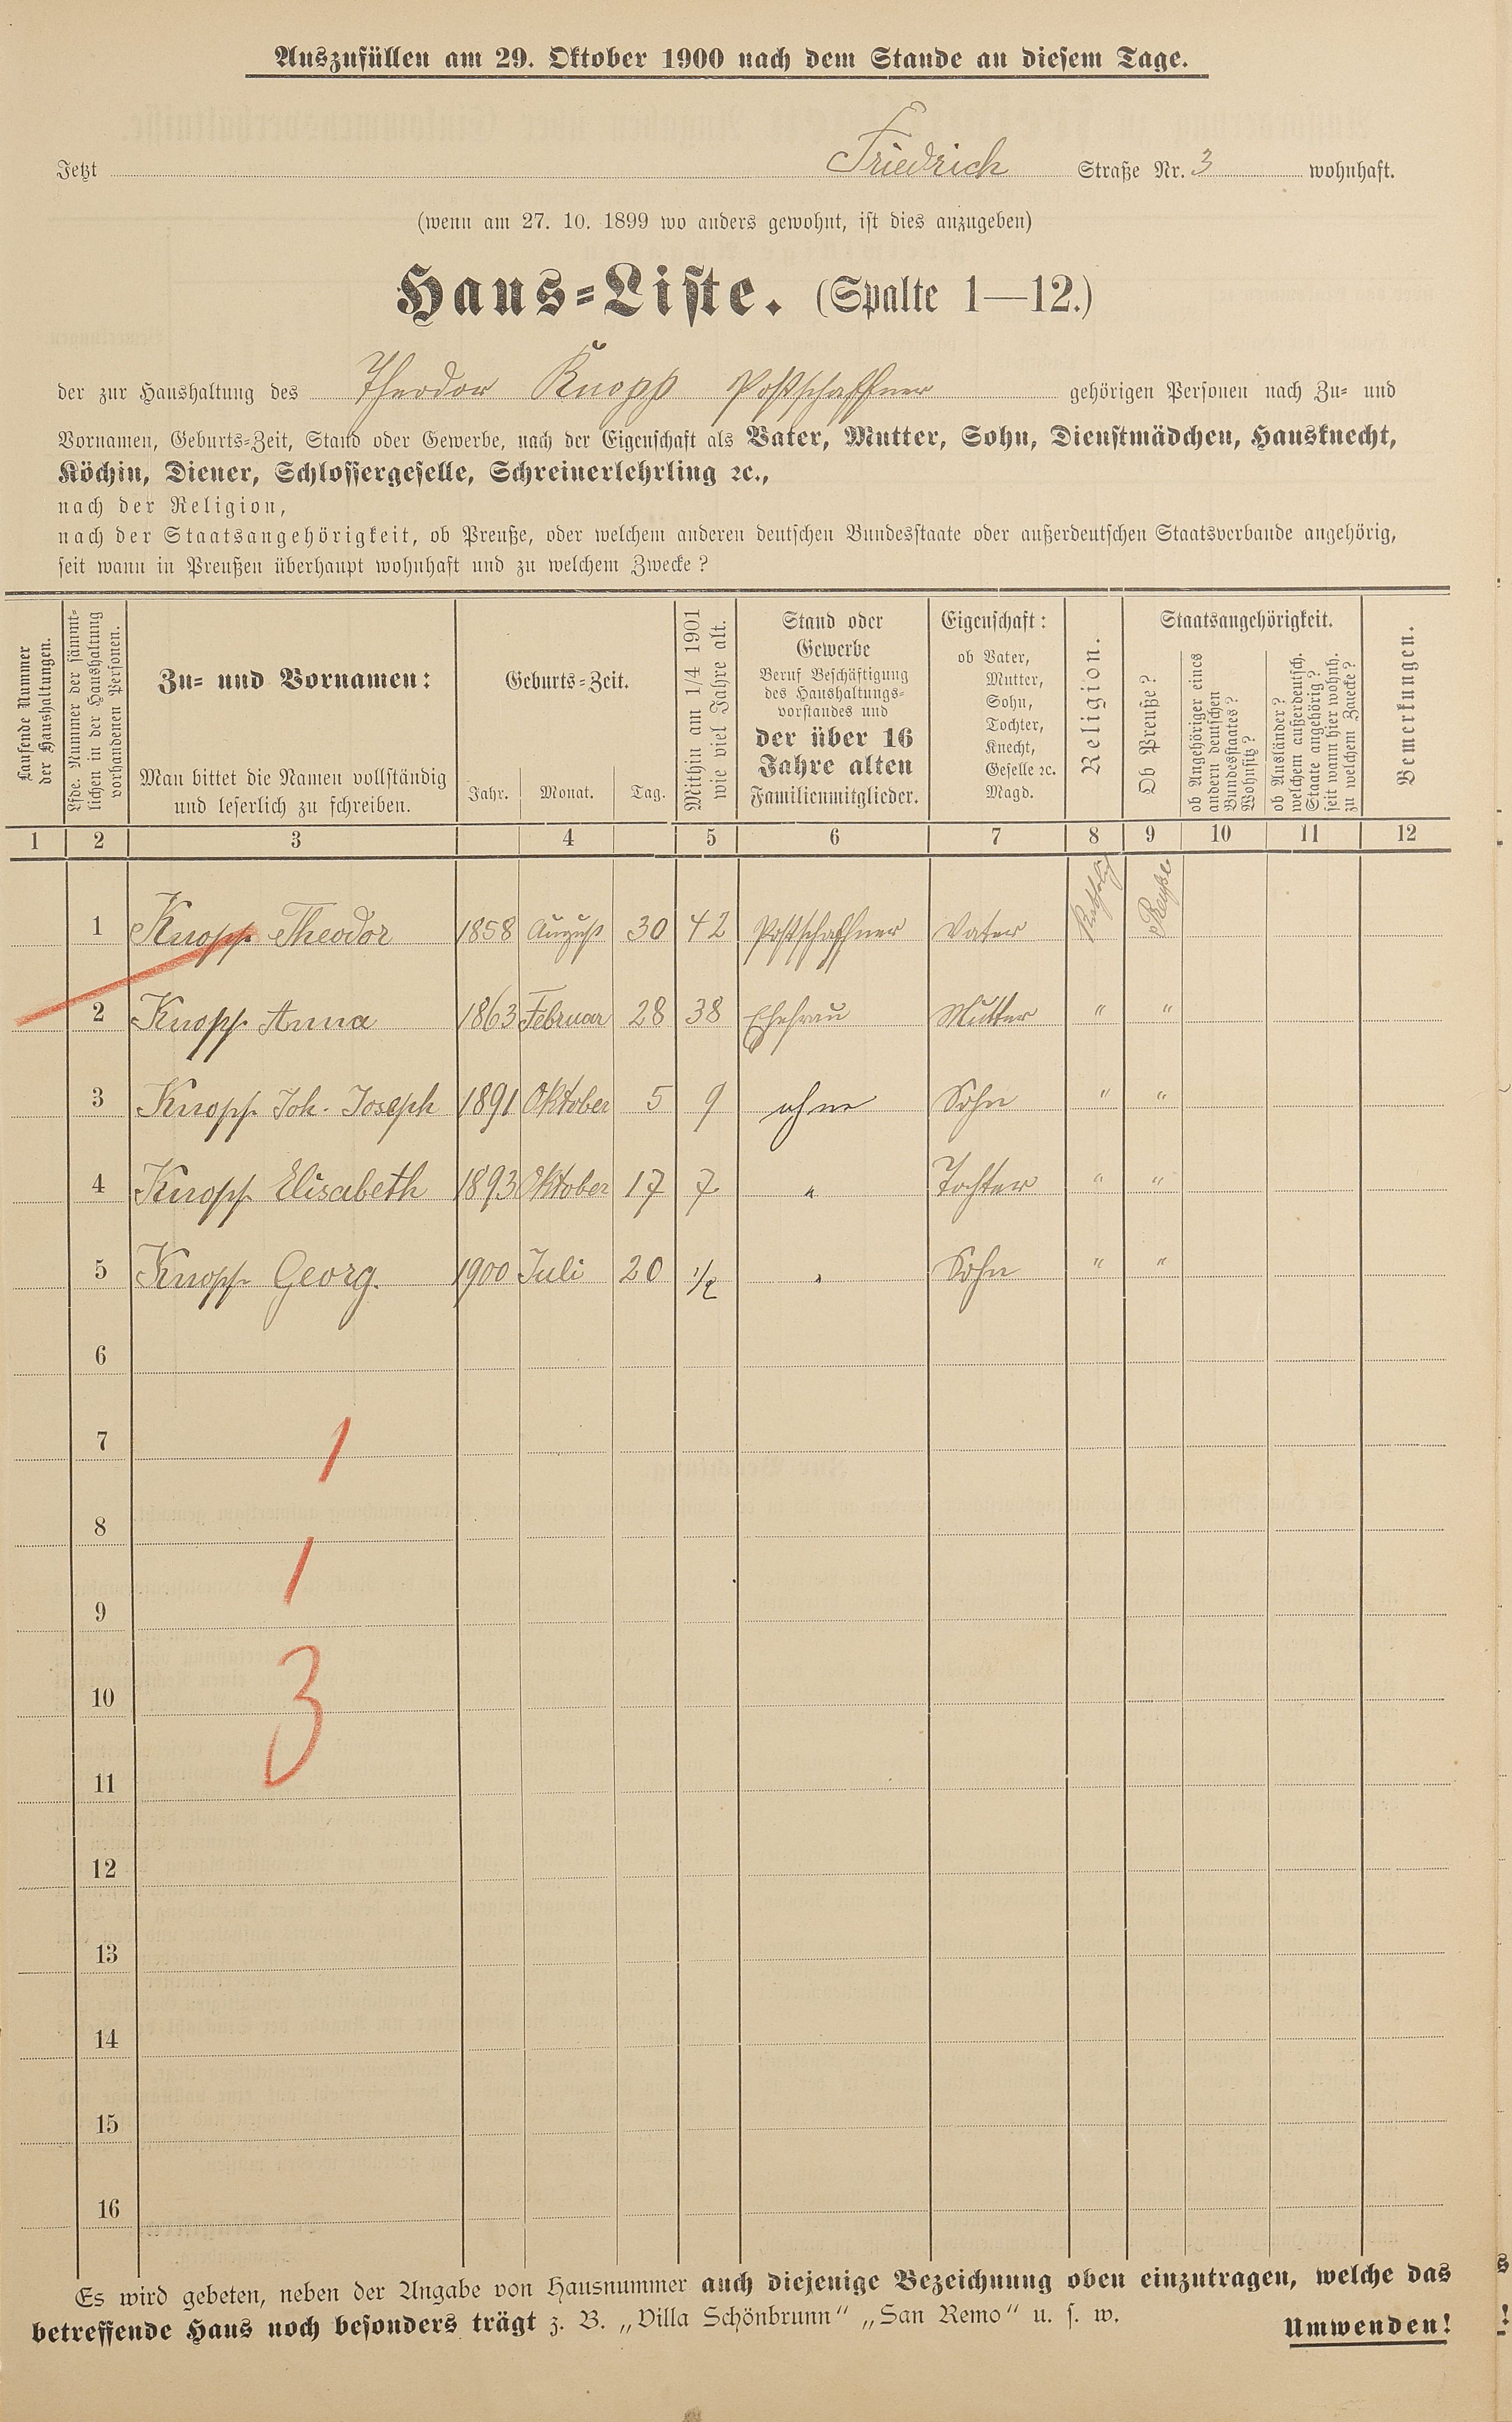 Auszufüllen am 29. Oktober 1900 nach dem Stande an diesem Tage.
Jetzt Friedrich Straße Nr. 3 wohnhaft.
(wenn am 27. 10. 1899 wo anders gewohnt, ist dies anzugeben)
Haus-Liste. (Spalte 1—12.)
der zur Haushaltung des Theodor Knopp Postschaffner gehörigen Personen nach Zu- und
Vornamen, Geburts-Zeit, Stand oder Gewerbe, nach der Eigenschaft als Vater, Mutter, Sohn, Dienstmädchen, Hausknecht,
Köchin, Diener, Schlossergeselle, Schreinerlehrling ꝛc.,
nach der Religion,
nach der Staatsangehörigkeit, ob Preuße, oder welchem anderen deutschen Bundesstaate oder außerdeutschen Staatsverbande angehörig,
seit wann in Preußen überhaupt wohnhaft und zu welchem Zwecke?
Laufende Nummer
der Haushaltungen.
Lfde. Nummer der sämmt-
lichen in der Haushaltung
vorhandenen Personen.
Zu- und Vornamen:
Man bittet die Namen vollständig
und leserlich zu schreiben.
Geburts-Zeit.
Jahr. Monat. Tag.
Mithin am 1/4 1901
wie viel Jahre alt.
Stand oder
Gewerbe
Beruf Beschäftigung
des Haushaltungs-
vorstandes und
der über 16
Jahre alten
Familienmitglieder.
Eigenschaft:
ob Vater,
Mutter,
Sohn,
Tochter,
Knecht,
Geselle ꝛc.
Magd.
Religion.
Staatsangehörigkeit.
Ob Preuße?
ob Angehöriger eines
andern deutschen
Bundesstaates?
Wohnsitz?
ob Ausländer?
welchem außerdeutsch.
Staate angehörig?
seit wann hier wohnh.
zu welchem Zwecke?
Bemerkungen.
1 2 3 4 5 6 7 8 9 10 11 12
1 Knopp Theodor 1858 August 30 42 Postschaffner Vater Katholig Preuße
2 Knopp Anna 1863 Februar 28 38 Ehefrau Mutter " "
3 Knopp Joh. Joseph 1891 Oktober 5 9 ohne Sohn " "
4 Knopp Elisabeth 1893 Oktober 17 7 " Tochter " "
5 Knopp Georg. 1900 Juli 20 1/2 " Sohn " "
6
7
1
8
1
9
3
10
11
12
13
14
15
16
Es wird gebeten, neben der Angabe von Hausnummer auch diejenige Bezeichnung oben einzutragen, welche das
betreffende Haus noch besonders trägt z. B. „Villa Schönbrunn" „San Remo" u. s. w.
Umwenden!